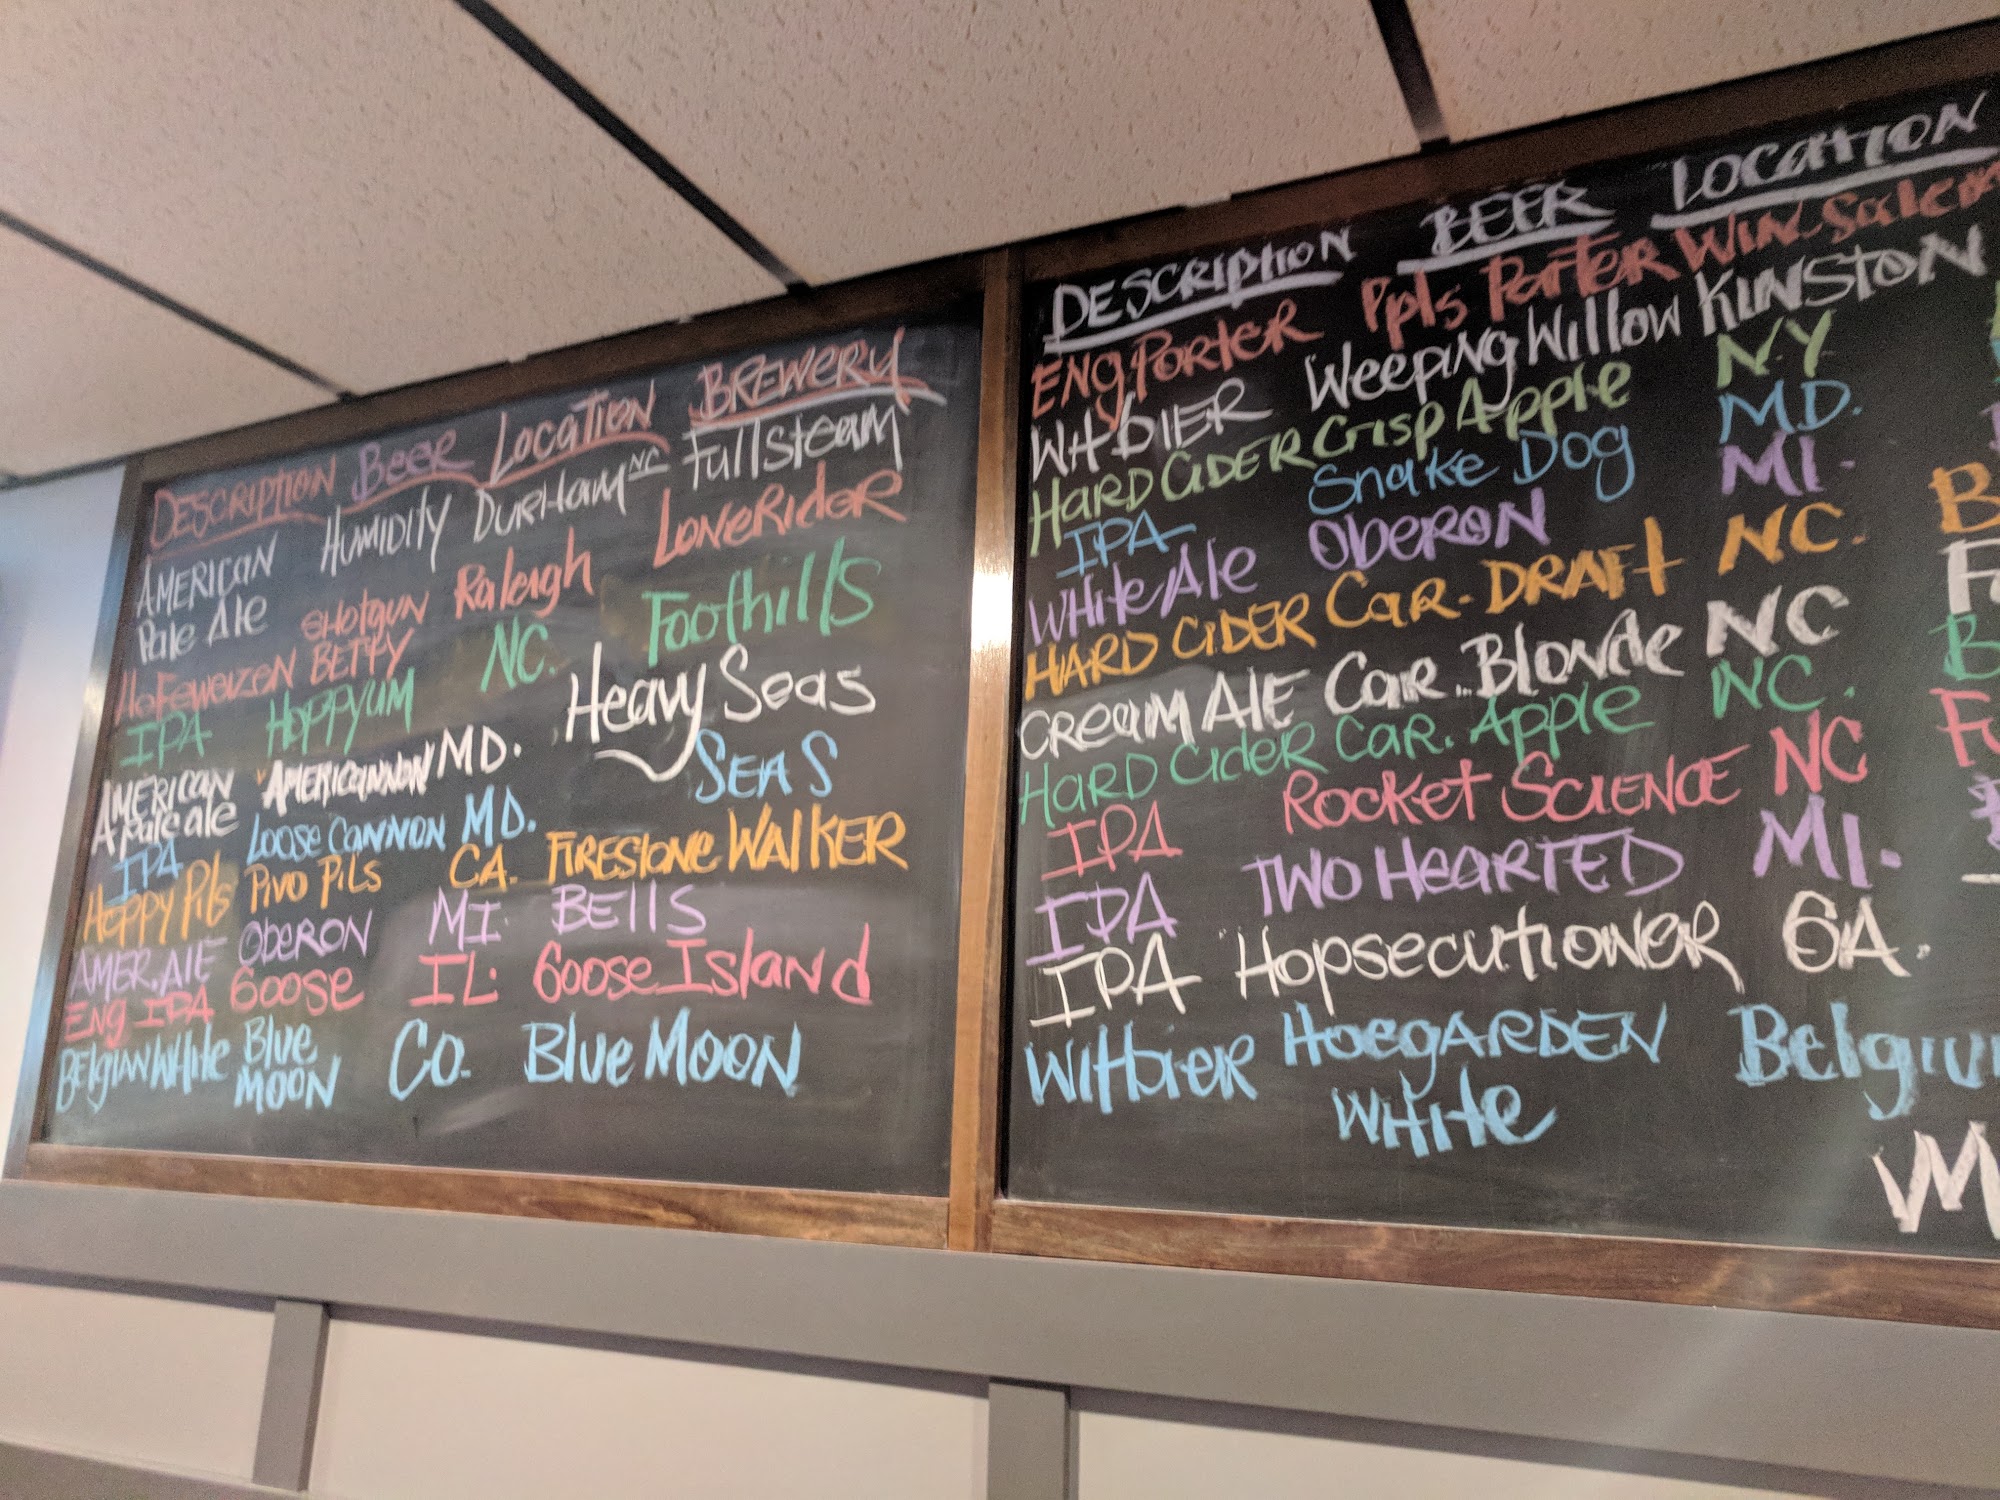 DESCRIPTION BEER LOCATION BREWERY
AMERICAN Pale Ale HUMIDITY DURHAM NC Fullsteam
HEFEWEIZEN SHOTGUN BETTY Raleigh LONERIDER
IPA HOPPYUM NC. Foothills
AMERICAN pale ale AMERICANNON MD. Heavy Seas
IPA LOOSE CANNON MD. SEAS
HOPPY Pils PIVO PILS CA. FIRESTONE WALKER
AMER. ALE OBERON MI. BELLS
ENG IPA GOOSE IL. GOOSE ISLAND
BELGIAN WHITE BLUE MOON CO. Blue MOON
DESCRIPTION BEER LOCATION
ENG PORTER Ppls PORTER WIN-Salem
WITBIER Weeping Willow KINSTON
HARD CIDER Crisp Apple NY
IPA Snake Dog MD.
WHITE Ale OBERON MI.
HARD CIDER CAR. DRAFT NC.
CREAM ALE CAR. Blonde NC
HARD Cider CAR. Apple NC.
IPA ROCKET SCIENCE NC
IPA TWO HEARTED MI.
IPA Hopsecutioner GA.
WITBIER HOEGARDEN WHITE